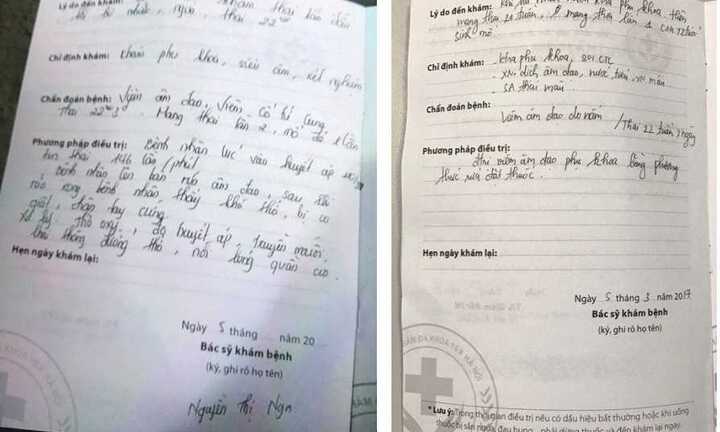 Lý do đến khám: khám thai lần đầu
thai 22
Chỉ định khám: khám phụ khoa, siêu âm, xét nghiệm
Chẩn đoán bệnh: Viêm âm đạo, viêm cổ tử cung
Thai 22 Mang thai lần 2, mổ đẻ 1 lần
Phương pháp điều trị: Bệnh nhân lúc vào huyết áp
tim thai 146 lần/phút
bệnh nhân lên bàn rửa âm đạo, sau khi
rửa xong bệnh nhân thấy khó thở, bị co
giật, chân tay cứng.
Xử lý: thở oxy, đo huyết áp, truyền muối,
khai thông đường thở, nới lỏng quần áo.
Hẹn ngày khám lại:
Ngày 5 tháng năm 20
Bác sỹ khám bệnh
(ký, ghi rõ họ tên)
Nguyễn Thị Nga
ĐA KHOA HÀ NỘI
Lý do đến khám: phụ khoa
mang thai 20 tuần, mang thai lần 1
sinh mổ
Chỉ định khám: kha phụ khoa, soi CTC
XN dịch âm đạo, nước tiểu, XN máu
SA thai màu
Chẩn đoán bệnh:
Viêm âm đạo do nấm /Thai 22 tuần 2 ngày
Phương pháp điều trị:
viêm âm đạo phụ khoa bằng phương
thức rửa đặt thuốc.
Hẹn ngày khám lại:
Ngày 5 tháng 3 năm 2017
Bác sỹ khám bệnh
(ký, ghi rõ họ tên)
ĐA KHOA HÀ NỘI
* Lưu ý: Trong thời gian điều trị nếu có dấu hiệu bất thường hoặc khi uống
thuốc bị sẩn ngứa, đau bụng phải dừng thuốc và đến khám lại ngay.